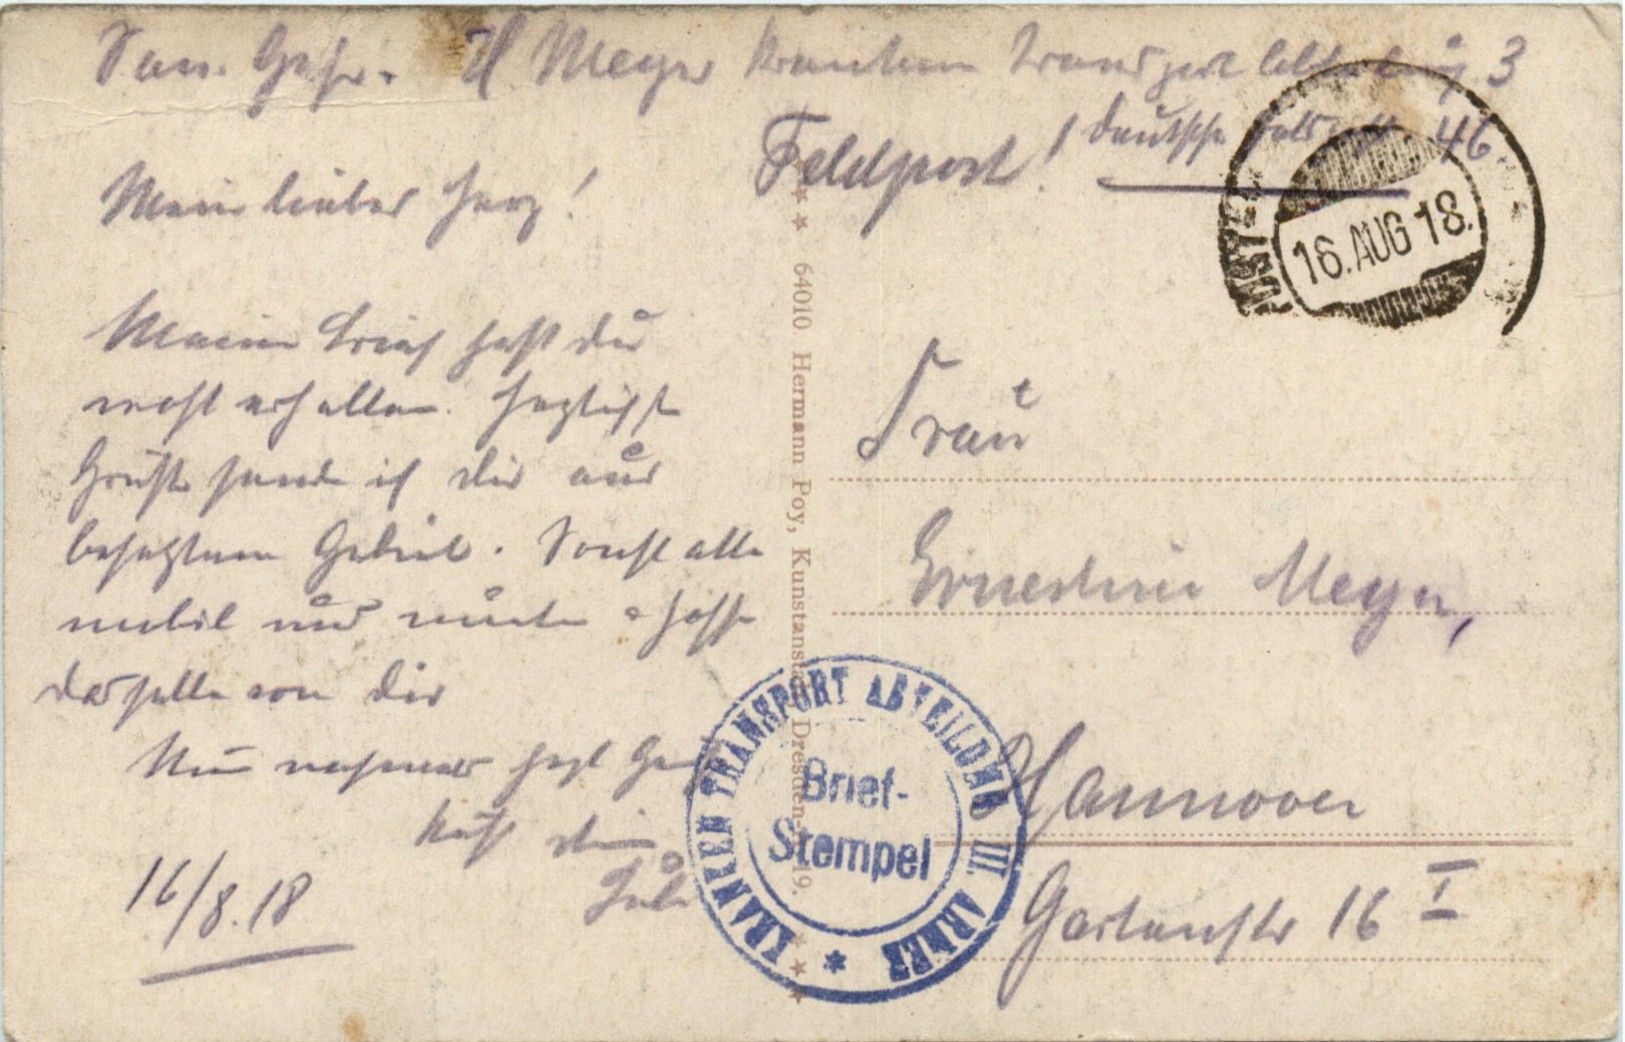 San. Gefr. H. Meyer Kranken Transport Abteilung 3
Feldpost! Deutsche Feldpost 46
16. AUG 18.
Mein lieber Herz!
Meinen Brief hast du
wohl erhalten. Herzlichste
Grüße sende ich dir aus
besetztem Gebiet. Sonst alles
mobil und munter hoffe
dasselbe von dir
Nun nochmals herzl
Kuß dein
16/8.18
64010 Hermann Poy, Kunstanstalt, Dresden-A. 19.
Frau
Ernestine Meyer,
Hannover
Gartenstr 16 I
KRANKEN TRANSPORT ABTEILUNG III. ARMEE
Brief-
Stempel